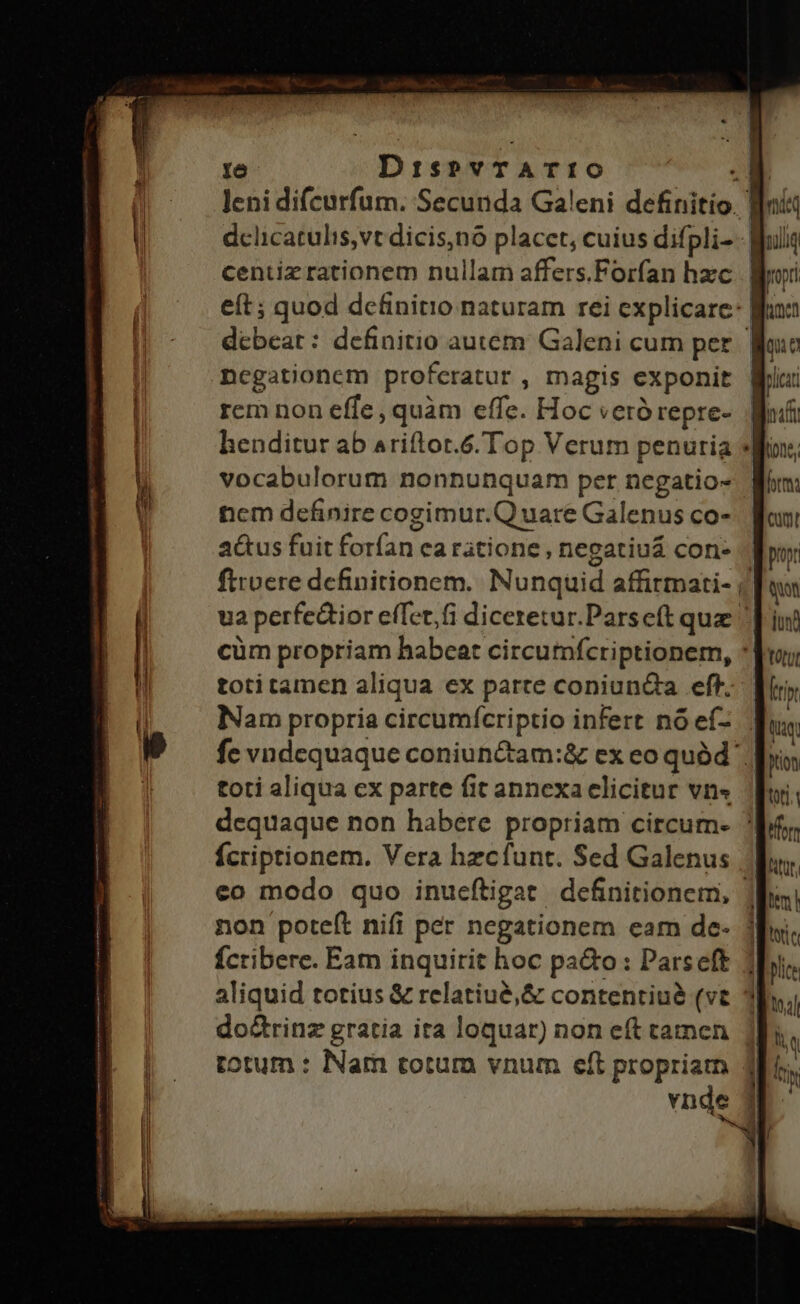 10 DISPVTATIO
leni difcurfum. Secunda Galeni definitio.
delicatulis,vt dicis,nõ placet, cuius difpli-
centiæ rationem nullam affers.Forfan hæc
eft; quod definitio naturam rei explicare
debeat: definitio autem Galeni cum per
negationem proferatur, magis exponit
rem non effe, quàm effe. Hoc verò repre-
henditur ab ariftot.6.Top. Verum penuria
vocabulorum nonnunquam per negatio-
nem definire cogimur.Quare Galenus co-
actus fuit forfan ea ratione, negatiuá con-
ftruere definitionem. Nunquid affirmati-
ua perfectior effet,fi diceretur.Pars eft quæ
cùm propriam habeat circumfcriptionem,
toti tamen aliqua ex parte coniuncta eft.
Nam propria circumfcriptio infert nõ ef-
fe vndequaque coniunctam:& ex eo quòd
toti aliqua ex parte fit annexa elicitur vn-
dequaque non habere propriam circum-
fcriptionem. Vera hæc funt. Sed Galenus
eo modo quo inueftigat definitionem,
non poteft nifi per negationem eam de-
fcribere. Eam inquirit hoc pacto: Pars eft
aliquid totius & relatiuè,& contentiuè (vt
doctrinæ gratia ita loquar) non eft tamen
totum: Nam totum vnum eft propriam
vnde